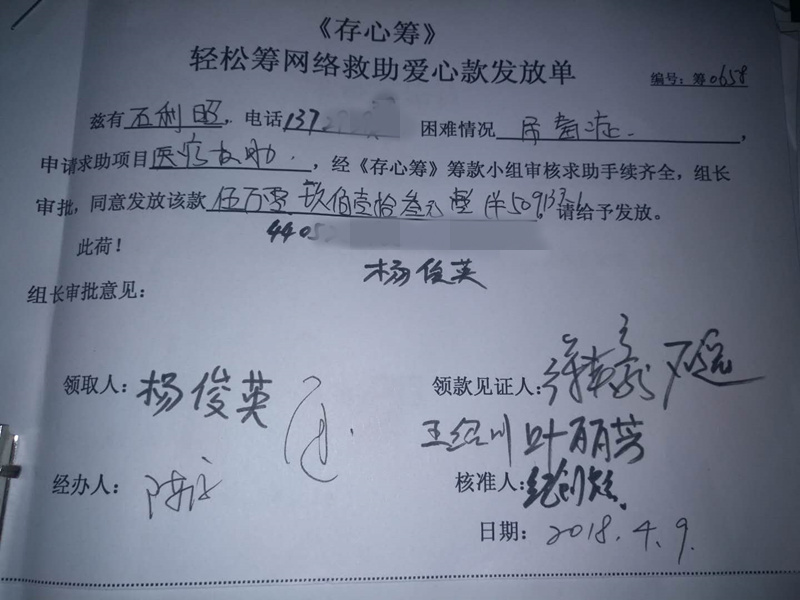 《存心筹》
轻松筹网络救助爱心款发放单
编号：筹0658
兹有石利昭，电话137 困难情况尿毒症，
申请求助项目医疗救助，经《存心筹》筹款小组审核求助手续齐全，组长
审批，同意发放该款伍万零玖佰壹拾叁元整 50913元 请给予发放。
此荷！ 4405
杨俊英
组长审批意见：
领取人：杨俊英 领款见证人：
叶丽芳
经办人： 核准人：
日期：2018.4.9.